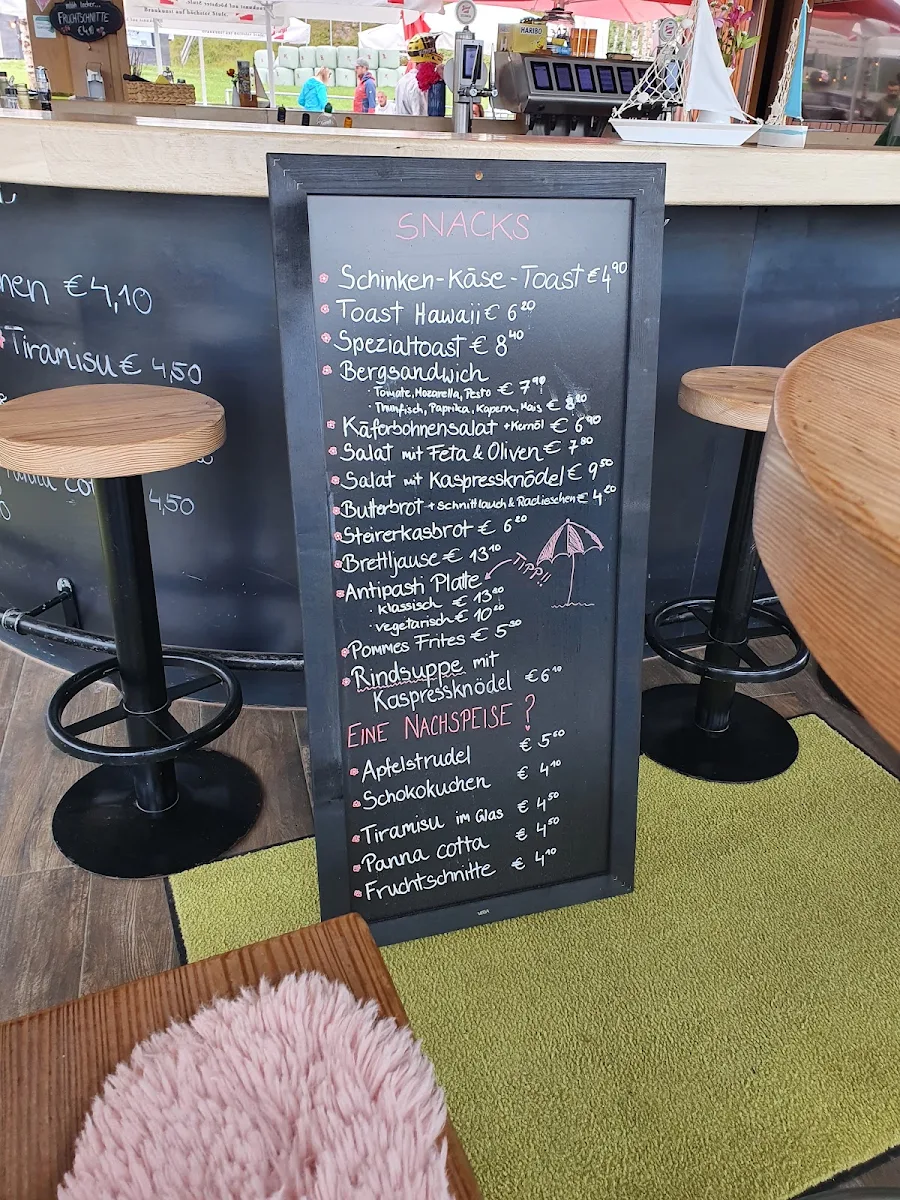 FRUCHTSCHNITTE
€4,10
HARIBO
€4,10
Tiramisu € 4,50
4,50
SNACKS
Schinken-Käse-Toast €4,90
Toast Hawaii € 6,20
Spezialtoast € 8,40
Bergsandwich
· Tomate, Mozarella, Pesto € 7,90
· Thunfisch, Paprika, Kapern, Mais € 8,20
Käferbohnensalat + Kernöl € 6,90
Salat mit Feta & Oliven € 7,80
Salat mit Kaspressknödel € 9,50
Butterbrot + Schnittlauch & Radieschen € 4,20
Steirerkasbrot € 6,20
Brettljause € 13,10
Antipasti Platte TIPP!!
· klassisch €
· vegetarisch €
Pommes Frites €
Rindsuppe mit
Kaspressknödel € 6,10
EINE NACHSPEISE?
Apfelstrudel € 5,60
Schokokuchen € 4,10
Tiramisu im Glas € 4,50
Panna cotta € 4,50
Fruchtschnitte € 4,10